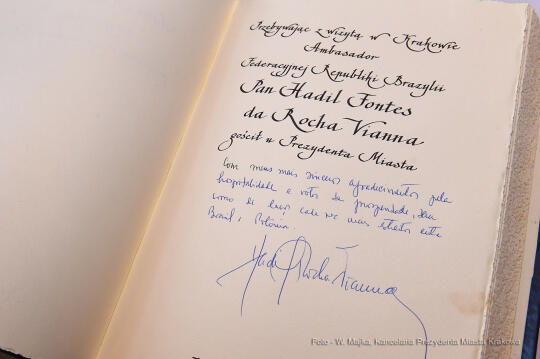 Przebywając z wizytą w Krakowie
Ambasador
Federacyjnej Republiki Brazylii
Pan Hadil Fontes
da Rocha Vianna
gościł u Prezydenta Miasta
Com meus mais sinceros agradecimentos pela
hospitalidade e votos de prosperidade,
como de laços cada vez mais estreitos entre
Brasil e Polônia.
Hadil Rocha Vianna
Foto - W. Majka, Kancelaria Prezydenta Miasta Krakowa